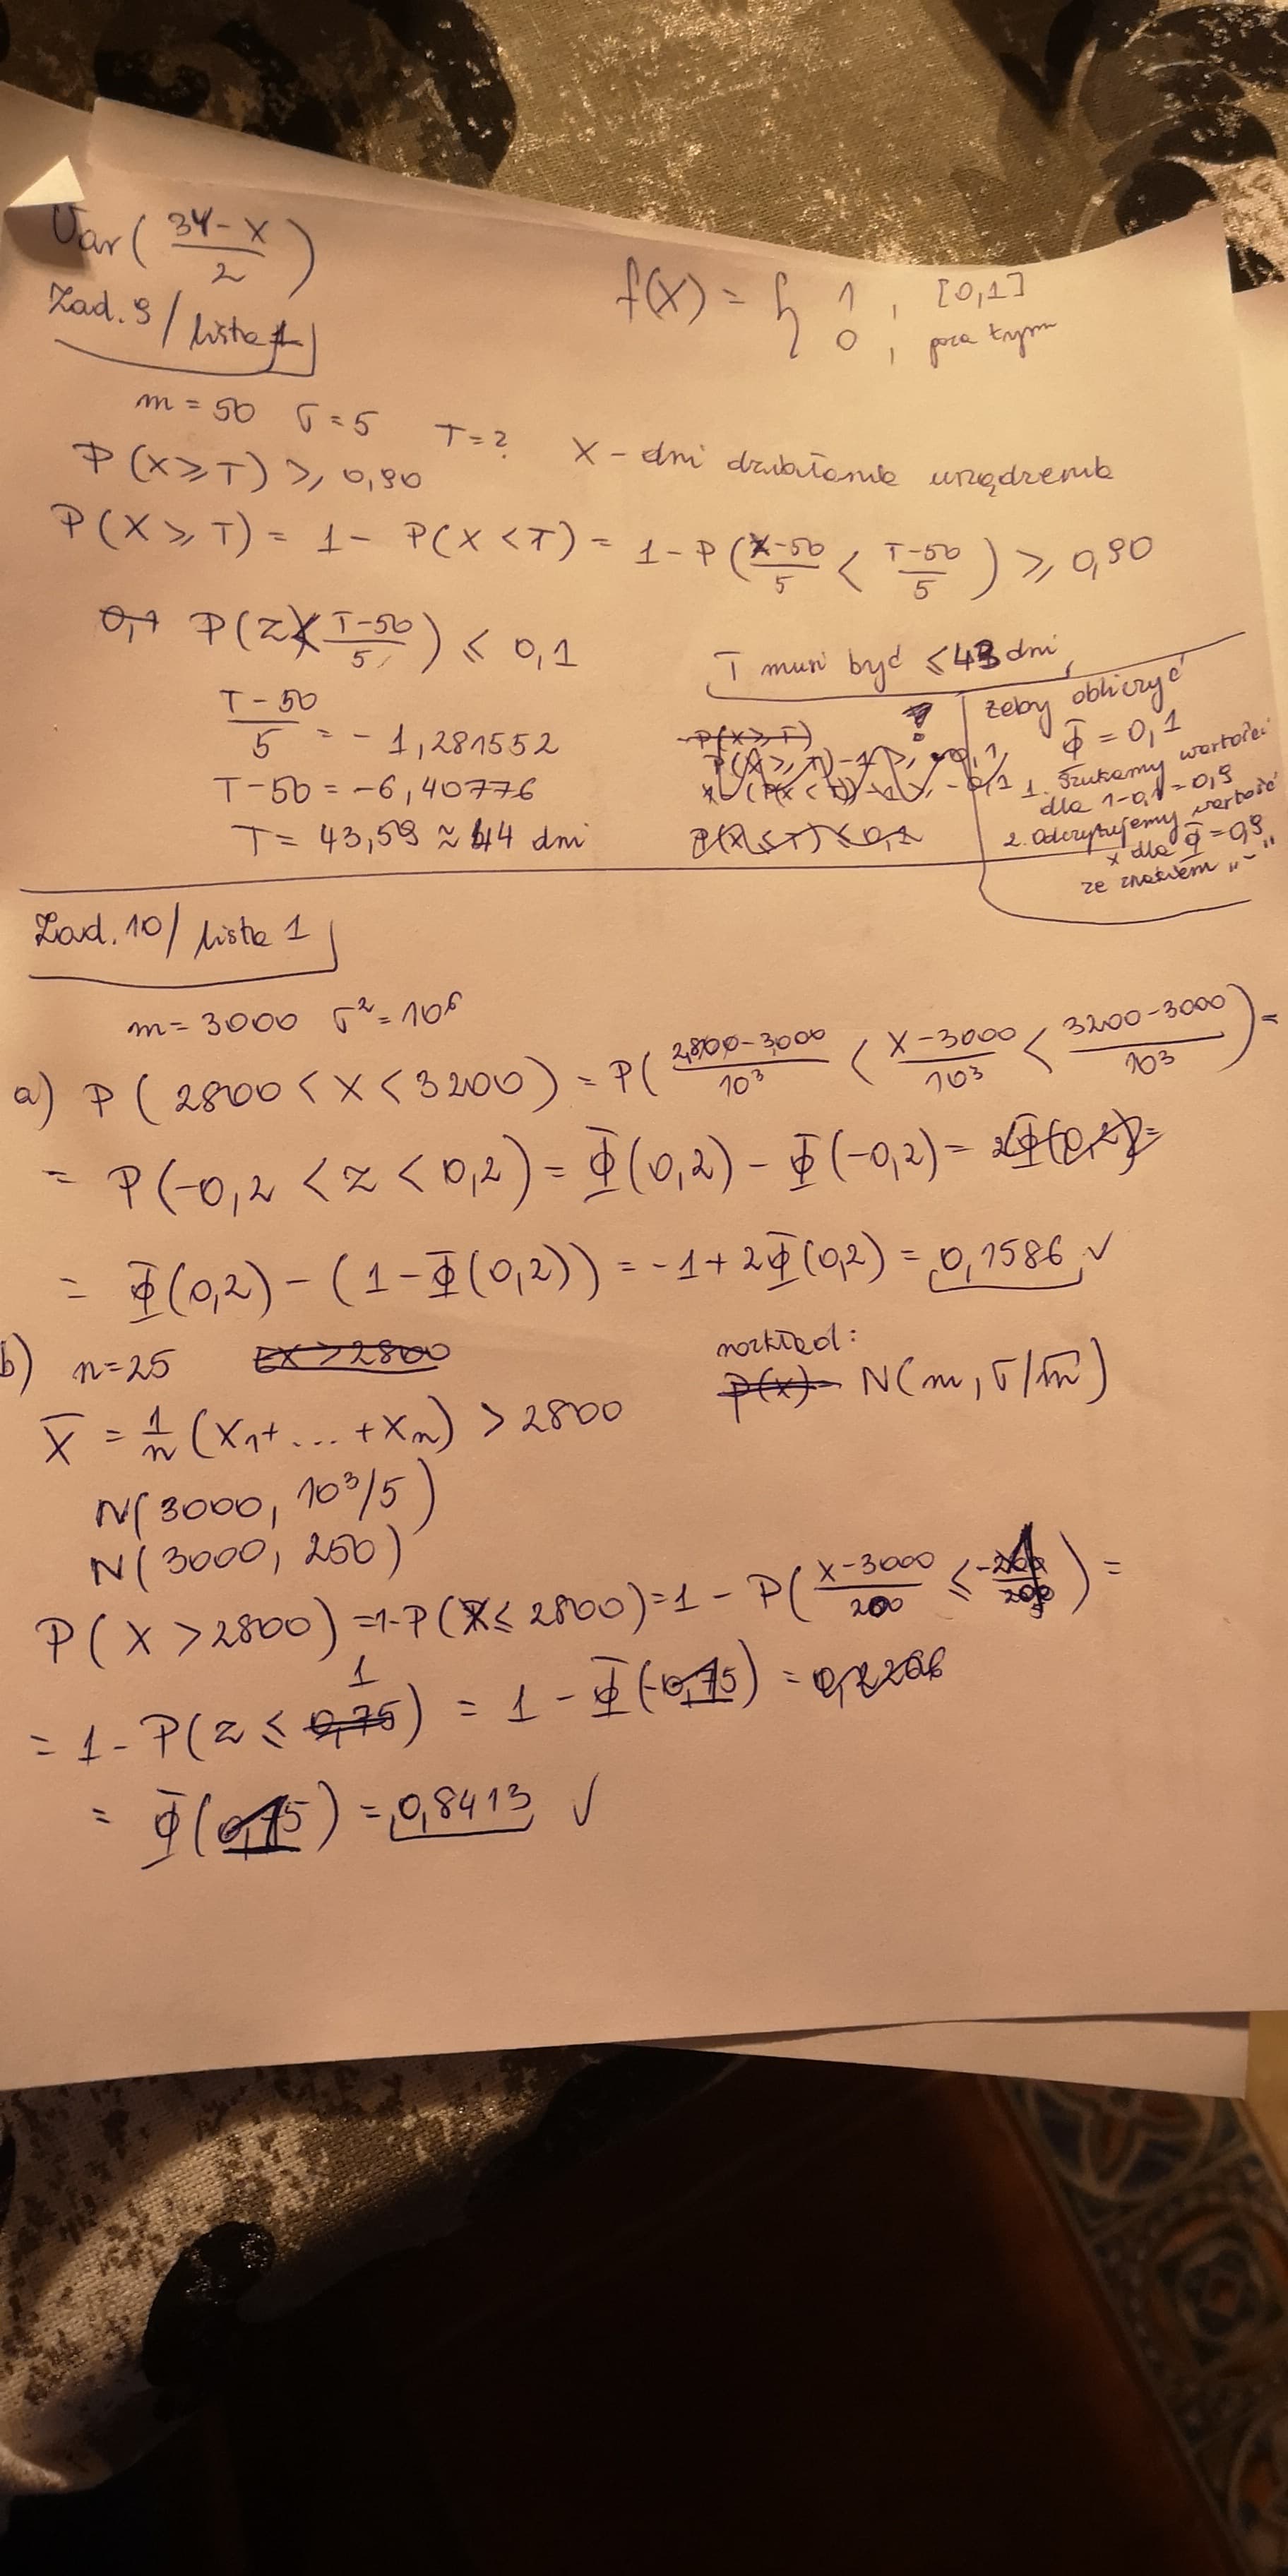 Var(\frac{34-X}{2})
Zad. 9/lista 1
f(X) = { 1 , [0,1]
0 , poza tym
m = 50 σ = 5 T = ? X - dni działania urządzenia
P(X ≥ T) ≥ 0,90
P(X ≥ T) = 1 - P(X < T) = 1 - P(\frac{X-50}{5} < \frac{T-50}{5}) ≥ 0,90
P(Z < \frac{T-50}{5}) ≤ 0,1
T musi być ≤ 43 dni
\frac{T-50}{5} = -1,281552
T-50 = -6,40776
T = 43,59 ≈ 44 dni
P(X ≥ T)
P(X ≤ T) ≤ 0,1
żeby obliczyć
Φ = 0,1
1. Szukamy wartości
dla 1-0,1 = 0,9
2. Odczytujemy wartość
x dla Φ = 0,9
ze znakiem „-”
Zad. 10/lista 1
m = 3000 σ² = 10⁶
a) P(2800 < X < 3200) = P(\frac{2800-3000}{10³} < \frac{X-3000}{10³} < \frac{3200-3000}{10³}) =
= P(-0,2 < Z < 0,2) = Φ(0,2) - Φ(-0,2) = 2Φ(0,2) =
= Φ(0,2) - (1 - Φ(0,2)) = -1 + 2Φ(0,2) = 0,1586 ✓
b) n = 25 EX > 2800
rozkład:
P(X) = N(m, σ/√n)
X̄ = \frac{1}{n}(X₁ + ... + Xₙ) > 2800
N(3000, 10³/5)
N(3000, 250)
P(X > 2800) = 1 - P(X ≤ 2800) = 1 - P(\frac{X-3000}{200} ≤ \frac{-200}{200}) =
= 1 - P(Z ≤ 0,75 1) = 1 - Φ(-0,75) = 0,2266
= Φ(0,75) = 0,8413 ✓